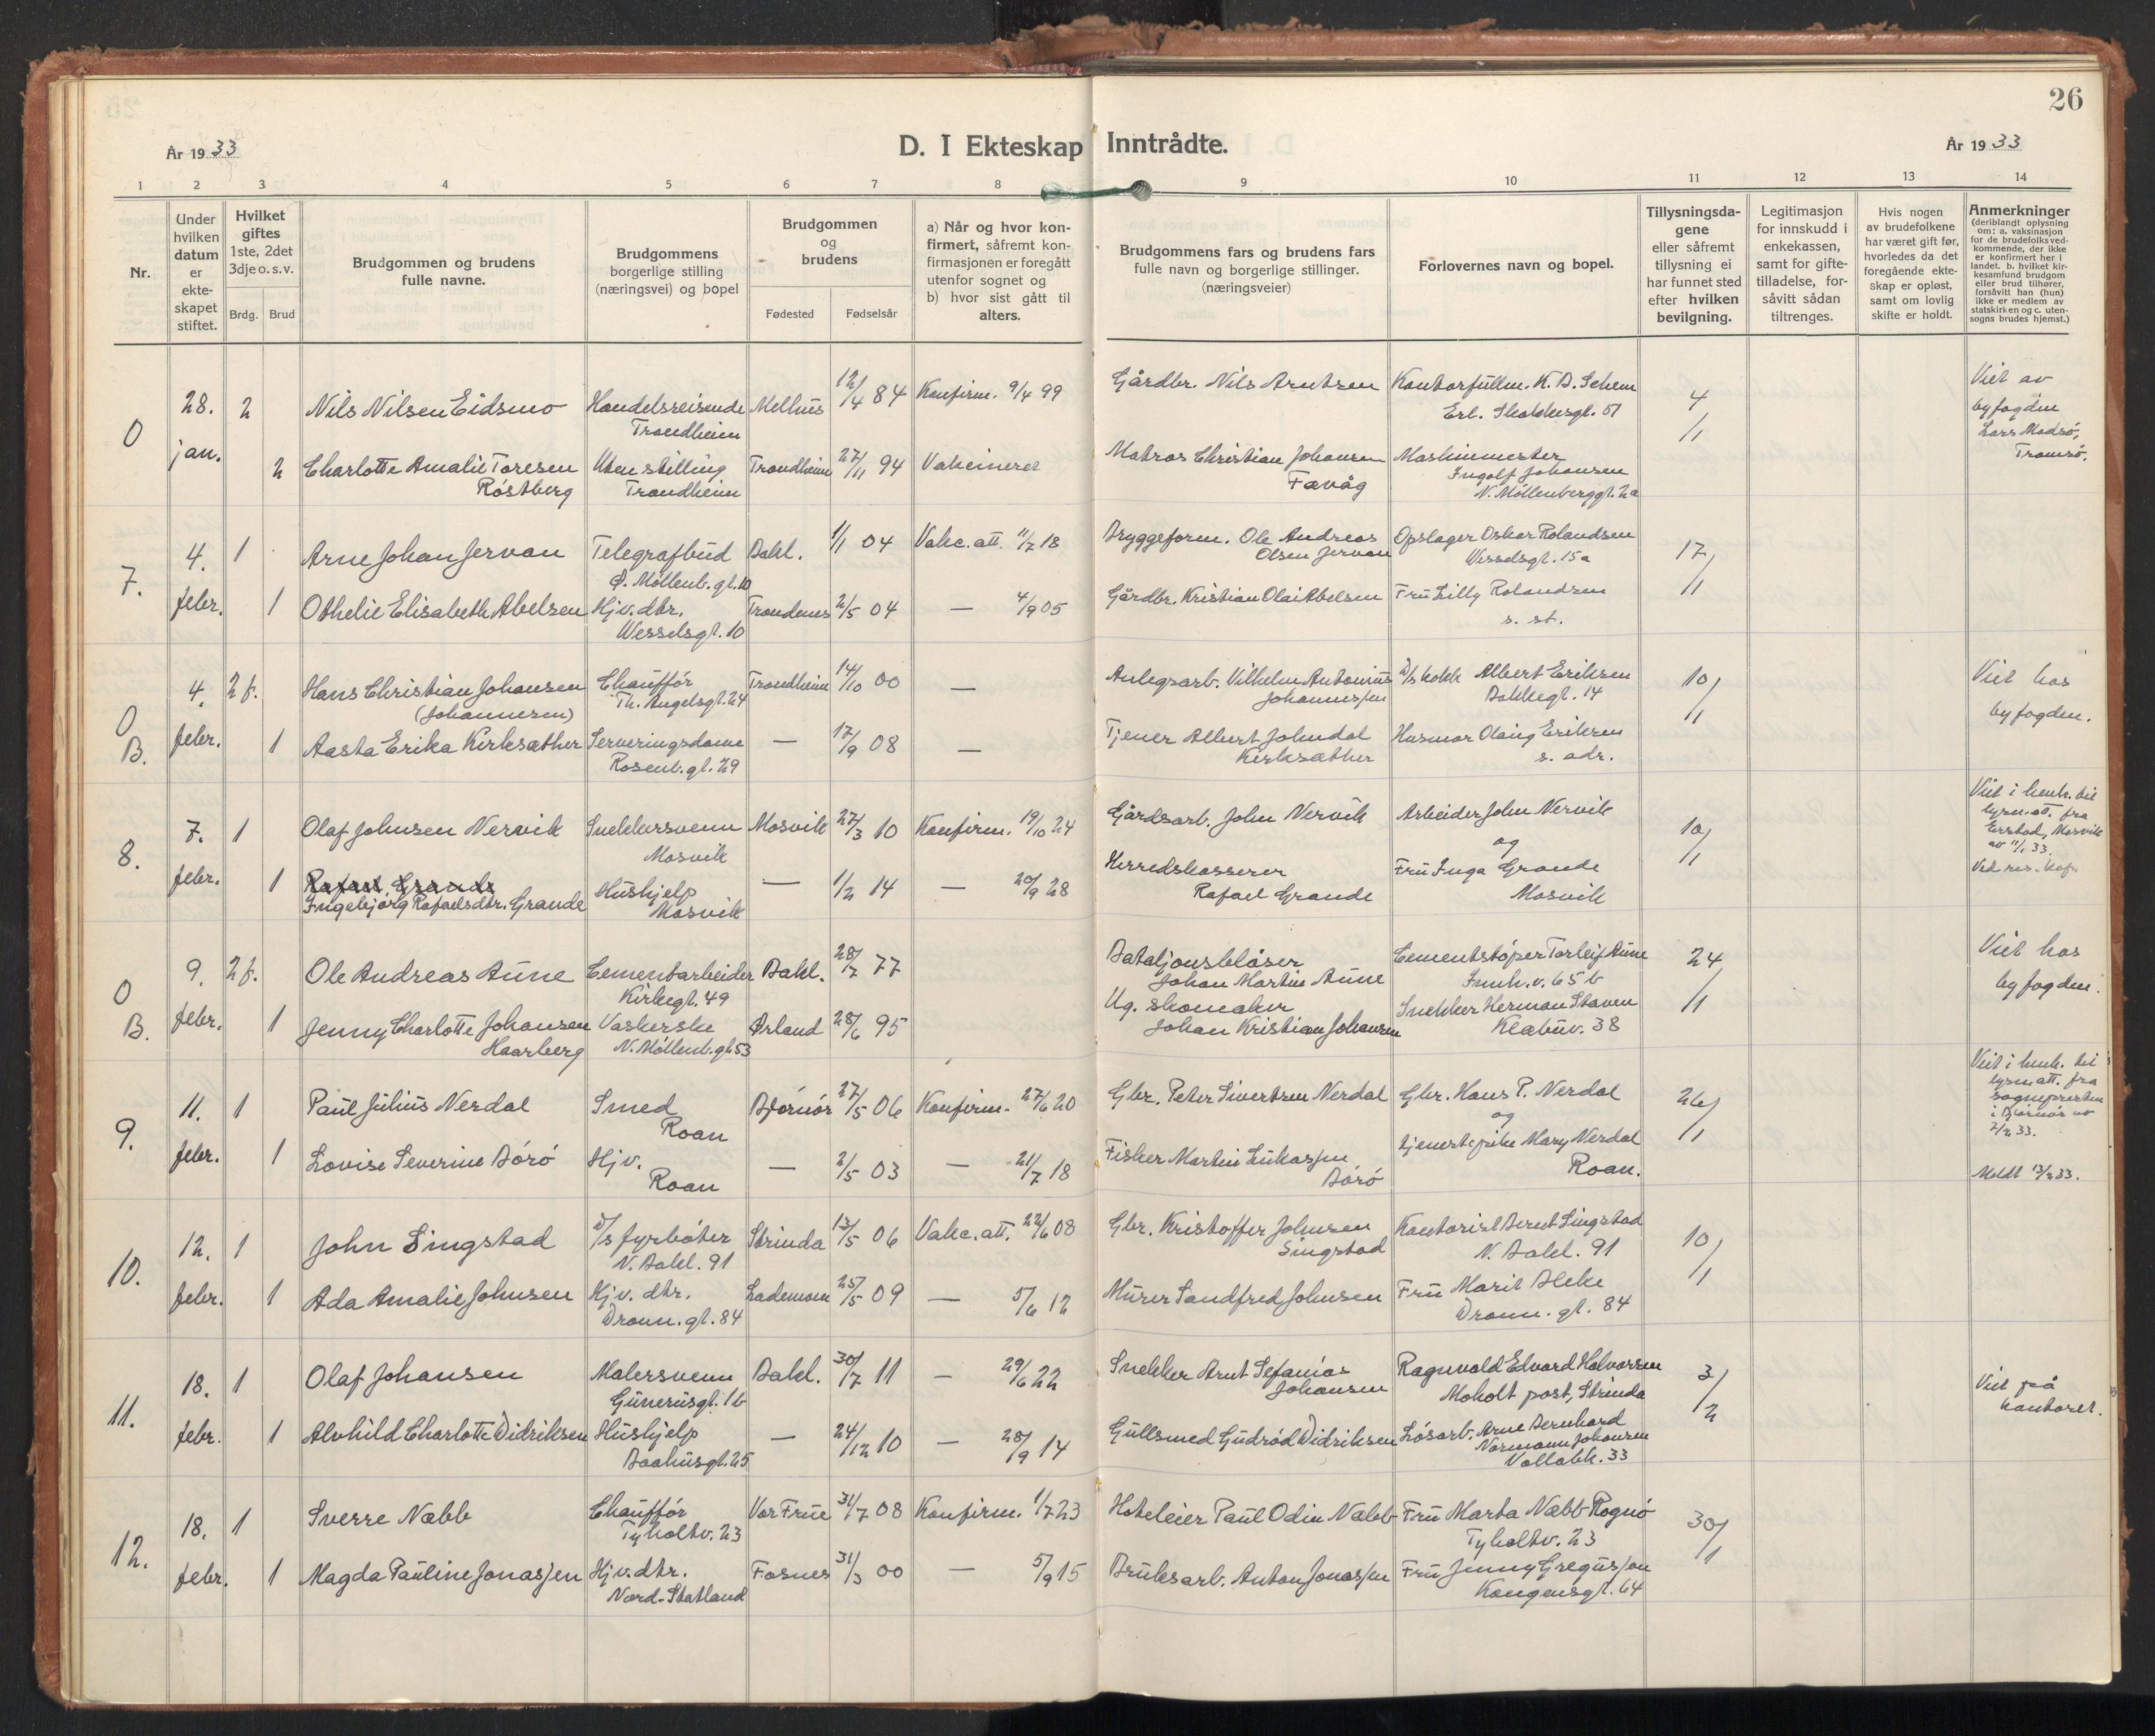 26
År 1933
D. I Ekteskap Inntrådte.
År 1933
1 2 3 4 5 6 7 8 9 10 11 12 13 14
Nr.
Under hvilken datum er ekteskapet stiftet.
Hvilket giftes 1ste, 2det 3dje o. s. v.
Brdg. Brud
Brudgommen og brudens fulle navne.
Brudgommens borgerlige stilling (næringsvei) og bopel
Brudgommen og brudens
Fødested Fødselsår
a) Når og hvor konfirmert, såfremt konfirmasjonen er foregått utenfor sognet og
b) hvor sist gått til alters.
Brudgommens fars og brudens fars fulle navn og borgerlige stillinger. (næringsveier)
Forlovernes navn og bopel.
Tillysningsdagene eller såfremt tillysning ei har funnet sted efter hvilken bevilgning.
Legitimasjon for innskudd i enkekassen, samt for giftetilladelse, forsåvitt sådan tiltrenges.
Hvis nogen av brudefolkene har været gift før, hvorledes da det foregående ekteskap er opløst, samt om lovlig skifte er holdt.
Anmerkninger (deriblandt oplysning om: a. vaksinasjon for de brudefolks vedkommende, der ikke er konfirmert her i landet. b. hvilket kirkesamfund brudgom eller brud tilhører, forsåvitt han (hun) ikke er medlem av statskirken og c. utensogns brudes hjemst.)
0 28. jan. 2 Nils Nilsen Eidsmo Handelsreisende Trondheim Melhus 12/4 84 Konfirm. 9/4 99 Gårdbr. Nils Arntsen Kontorfullm. K. D. Schem Erl. Skakkesgt. 51 4/1 Viet av byfogden Lars Modsø, Tromsø.
2 Charlotte Amalie Toresen Røstberg Uten stilling Trondheim Trondheim 27/11 94 Vakcineret Matros Christian Johansen Favåg Maskinmester Ingolf Johansen N. Møllenberggt. 2a
7. 4. febr. 1 Arne Johan Jervan Telegrafbud Ø. Møllenb. gt. 10 Bakl. 1/1 04 Vakc. att. 11/7 18 Bryggeform. Ole Andreas Olsen Jervan Opslager Oskar Rolandsen Wesselsgt. 15a 17/1
1 Othelie Elisabeth Abelsen Hjv. dtr. Wesselsgt. 10 Trondenes 2/5 04 — 4/9 05 Gårdbr. Kristian Olai Abelsen Fru Lilly Rolandsen s. st.
0 B. 4. febr. 2 f. Hans Christian Johansen (Johannesen) Chauffør Th. Angelsgt. 24 Trondheim 14/10 00 — Anlegsarb. Vilhelm Antonius Johannessen D/s kokk Albert Eriksen Bakkegt. 14 10/1 Viet hos byfogden.
1 Aasta Erika Kirksæther Serveringsdame Rosenb. gt. 29 — 17/9 08 — Tjener Albert Johndal Kirksæther Husmor Olaug Eriksen s. adr.
8. 7. febr. 1 Olaf Johnsen Nervik Snekkersvenn Mosvik Mosvik 27/3 10 Konfirm. 19/10 24 Gårdsarb. John Nervik Arbeider John Nervik og 10/1 Viet i henh. til lysn. att. fra Mosvik av 11/1 33. Ved res. kap.
1 Rafael Grande Ingebjørg Rafaelsdtr. Grande Hushjelp Mosvik — 1/2 14 — 20/9 28 Herredskasserer Rafael Grande Fru Inga Grande Mosvik
0 B. 9. febr. 2 f. Ole Andreas Aune Cementarbeider Kirkegt. 49 Bakl. 28/7 77 Bataljonsblåser Johan Martin Aune Cementstøper Torleif Aune Innh. v. 65 b 24/1 Viet hos byfogden.
1 Jenny Charlotte Johansen Haarberg Vaskerske N. Møllenb. gt. 53 Ørland 28/6 95 Ug. skomaker Johan Kristian Johansen Snekker Herman Staven Klæbuv. 38
9. 11. febr. 1 Paul Julius Nerdal Smed Roan Bjørnør 27/5 06 Konfirm. 27/6 20 Gbr. Peter Sivertsen Nerdal Gbr. Hans P. Nerdal og 26/1 Viet i henh. til lysn. att. fra sognepresten i Bjørnør av 2/2 33.
1 Lovise Severine Børø Hjv. Roan — 2/5 03 — 21/7 18 Fisker Martin Lukassen Børø tjenestepike Mary Nerdal Roan. Meldt 13/2 33.
10. 12. febr. 1 John Singstad D/s fyrbøter N. Bakl. 91 Strinda 13/5 06 Vakc. att. 22/6 08 Gbr. Kristoffer Johnsen Singstad Kontorist Bernt Singstad N. Bakl. 91 10/1
1 Ada Amalie Johnsen Hjv. dtr. Dronn. gt. 84 Lademoen 25/5 09 — 5/6 12 Murer Sandfred Johnsen Fru Marit Bleke Dronn. gt. 84
11. 18. febr. 1 Olaf Johansen Malersvenn Gunerusgt. 1b Bakl. 30/7 11 — 29/6 22 Snekker Arnt Sefanias Johansen Ragnvald Edvard Halvorsen Moholt post, Strinda 3/2 Viet på kontoret.
1 Alvhild Charlotte Didriksen Hushjelp Baahusgt. 25 — 24/12 10 — 28/9 14 Gullsmed Gudrød Didriksen Løsarb. Arne Bernhard Normann Johansen Vollabk. 33
12. 18. febr. 1 Sverre Næbb Chauffør Tyholtv. 23 Vor Frue 31/7 08 Konfirm. 1/7 23 Hoteleier Paul Odin Næbb Fru Marta Næbb Rognø Tyholtv. 23 30/1
1 Magda Pauline Jonassen Hjv. dtr. Nord-Statland Fosnes 31/3 00 — 5/9 15 Bruksarb. Anton Jonassen Fru Jenny Gregussen Kongensgt. 64